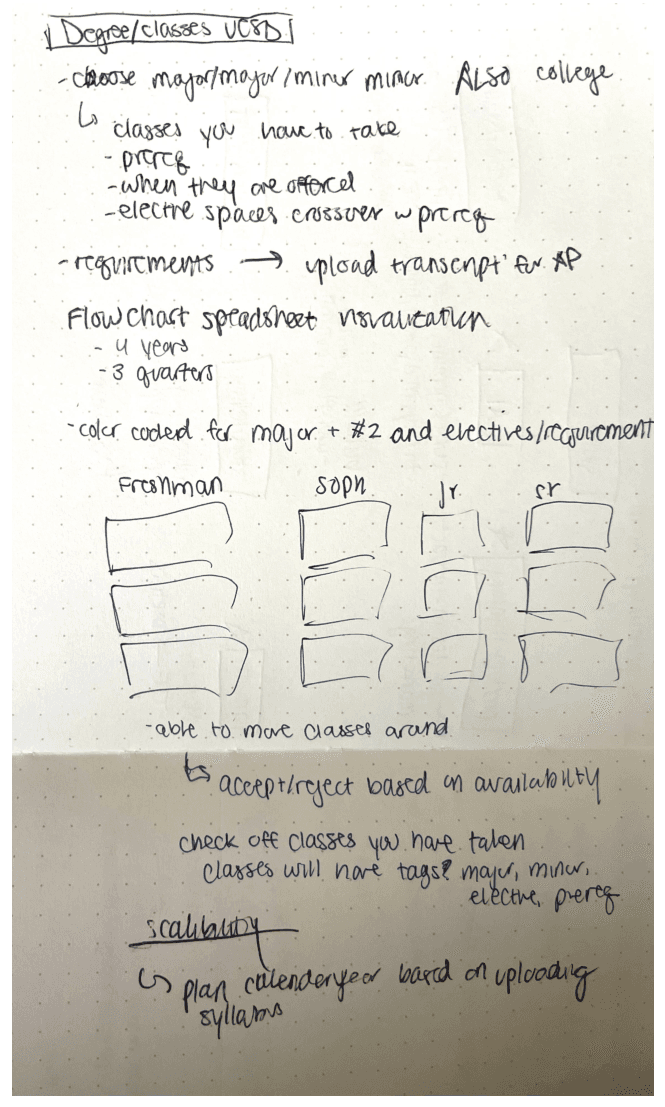 Degree/classes UCSD
- choose major/major/minor minor ALSO college
↳ classes you have to take
- prereq
- when they are offered
- elective spaces crossover w prereq
- requirements → upload transcript for AP
Flowchart speadsheet visualization
- 4 years
- 3 quarters
- color coded for major + #2 and electives/requirement
Freshman Soph. Jr. sr
- able to move classes around
↳ accept/reject based on availability
check off classes you have taken
classes will have tags? major, minor,
elective, prereq
scalibility
↳ plan calenderyear based on uploading
syllabus